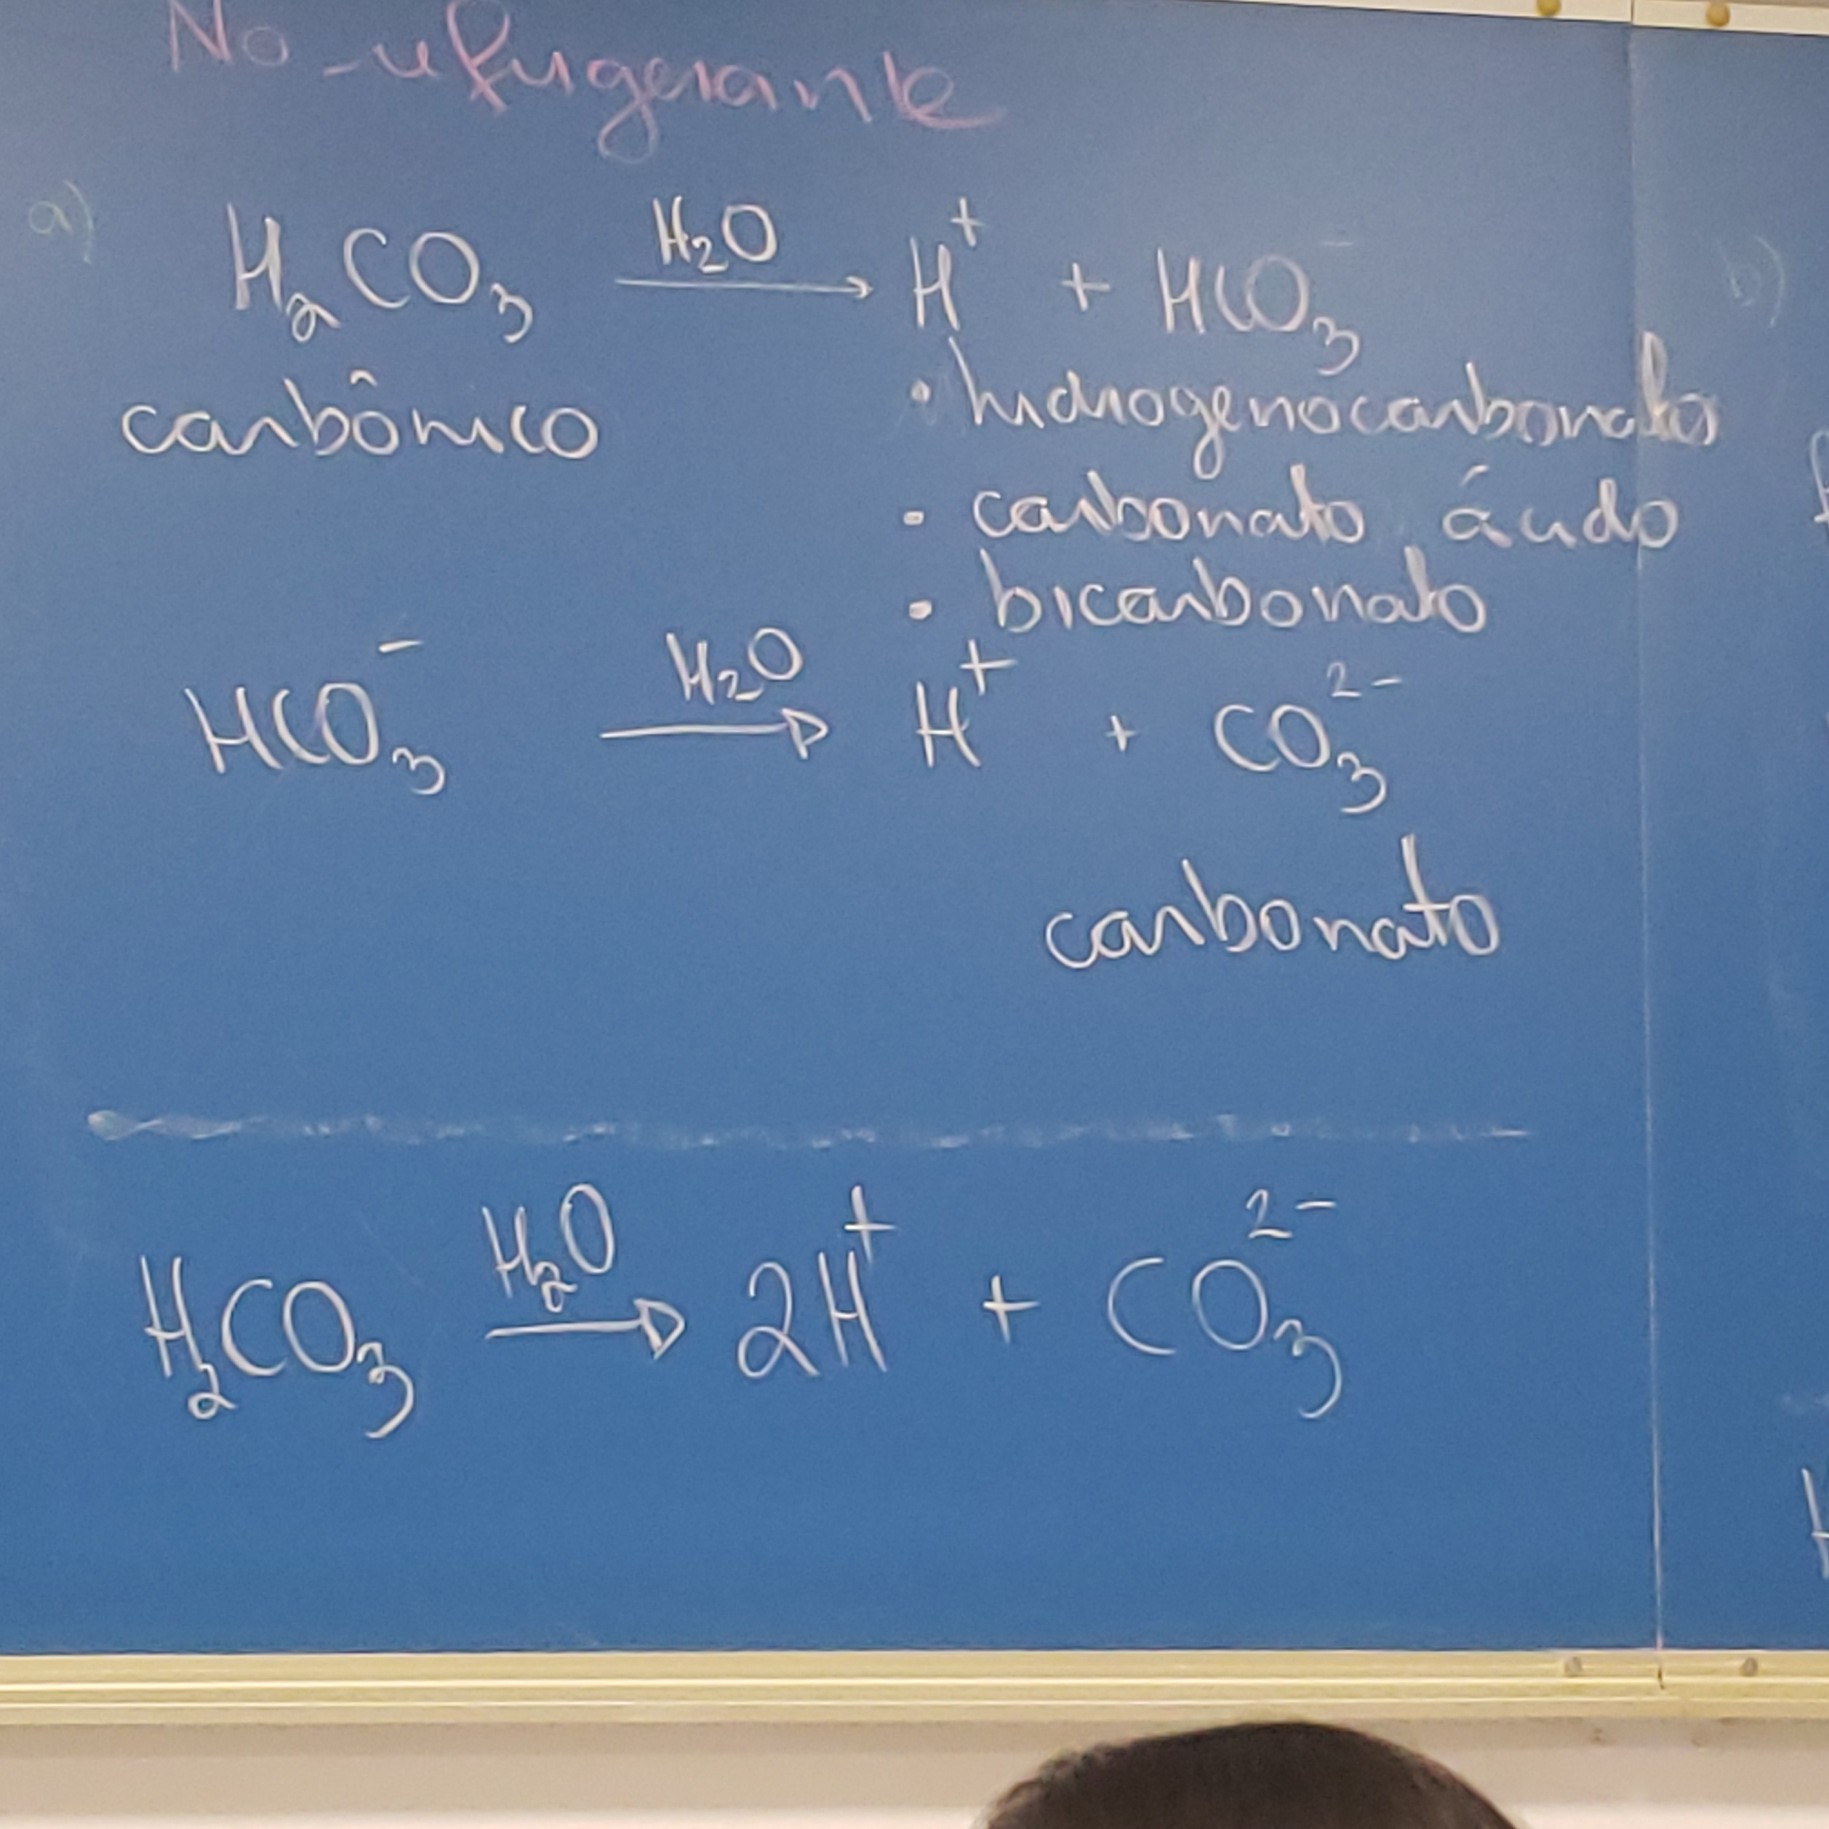 No refrigerante
a) H₂CO₃ H₂O → H⁺ + HCO₃⁻ b)
carbônico • hidrogenocarbonato
• carbonato ácido
• bicarbonato
HCO₃⁻ H₂O → H⁺ + CO₃²⁻
carbonato
H₂CO₃ H₂O → 2H⁺ + CO₃²⁻